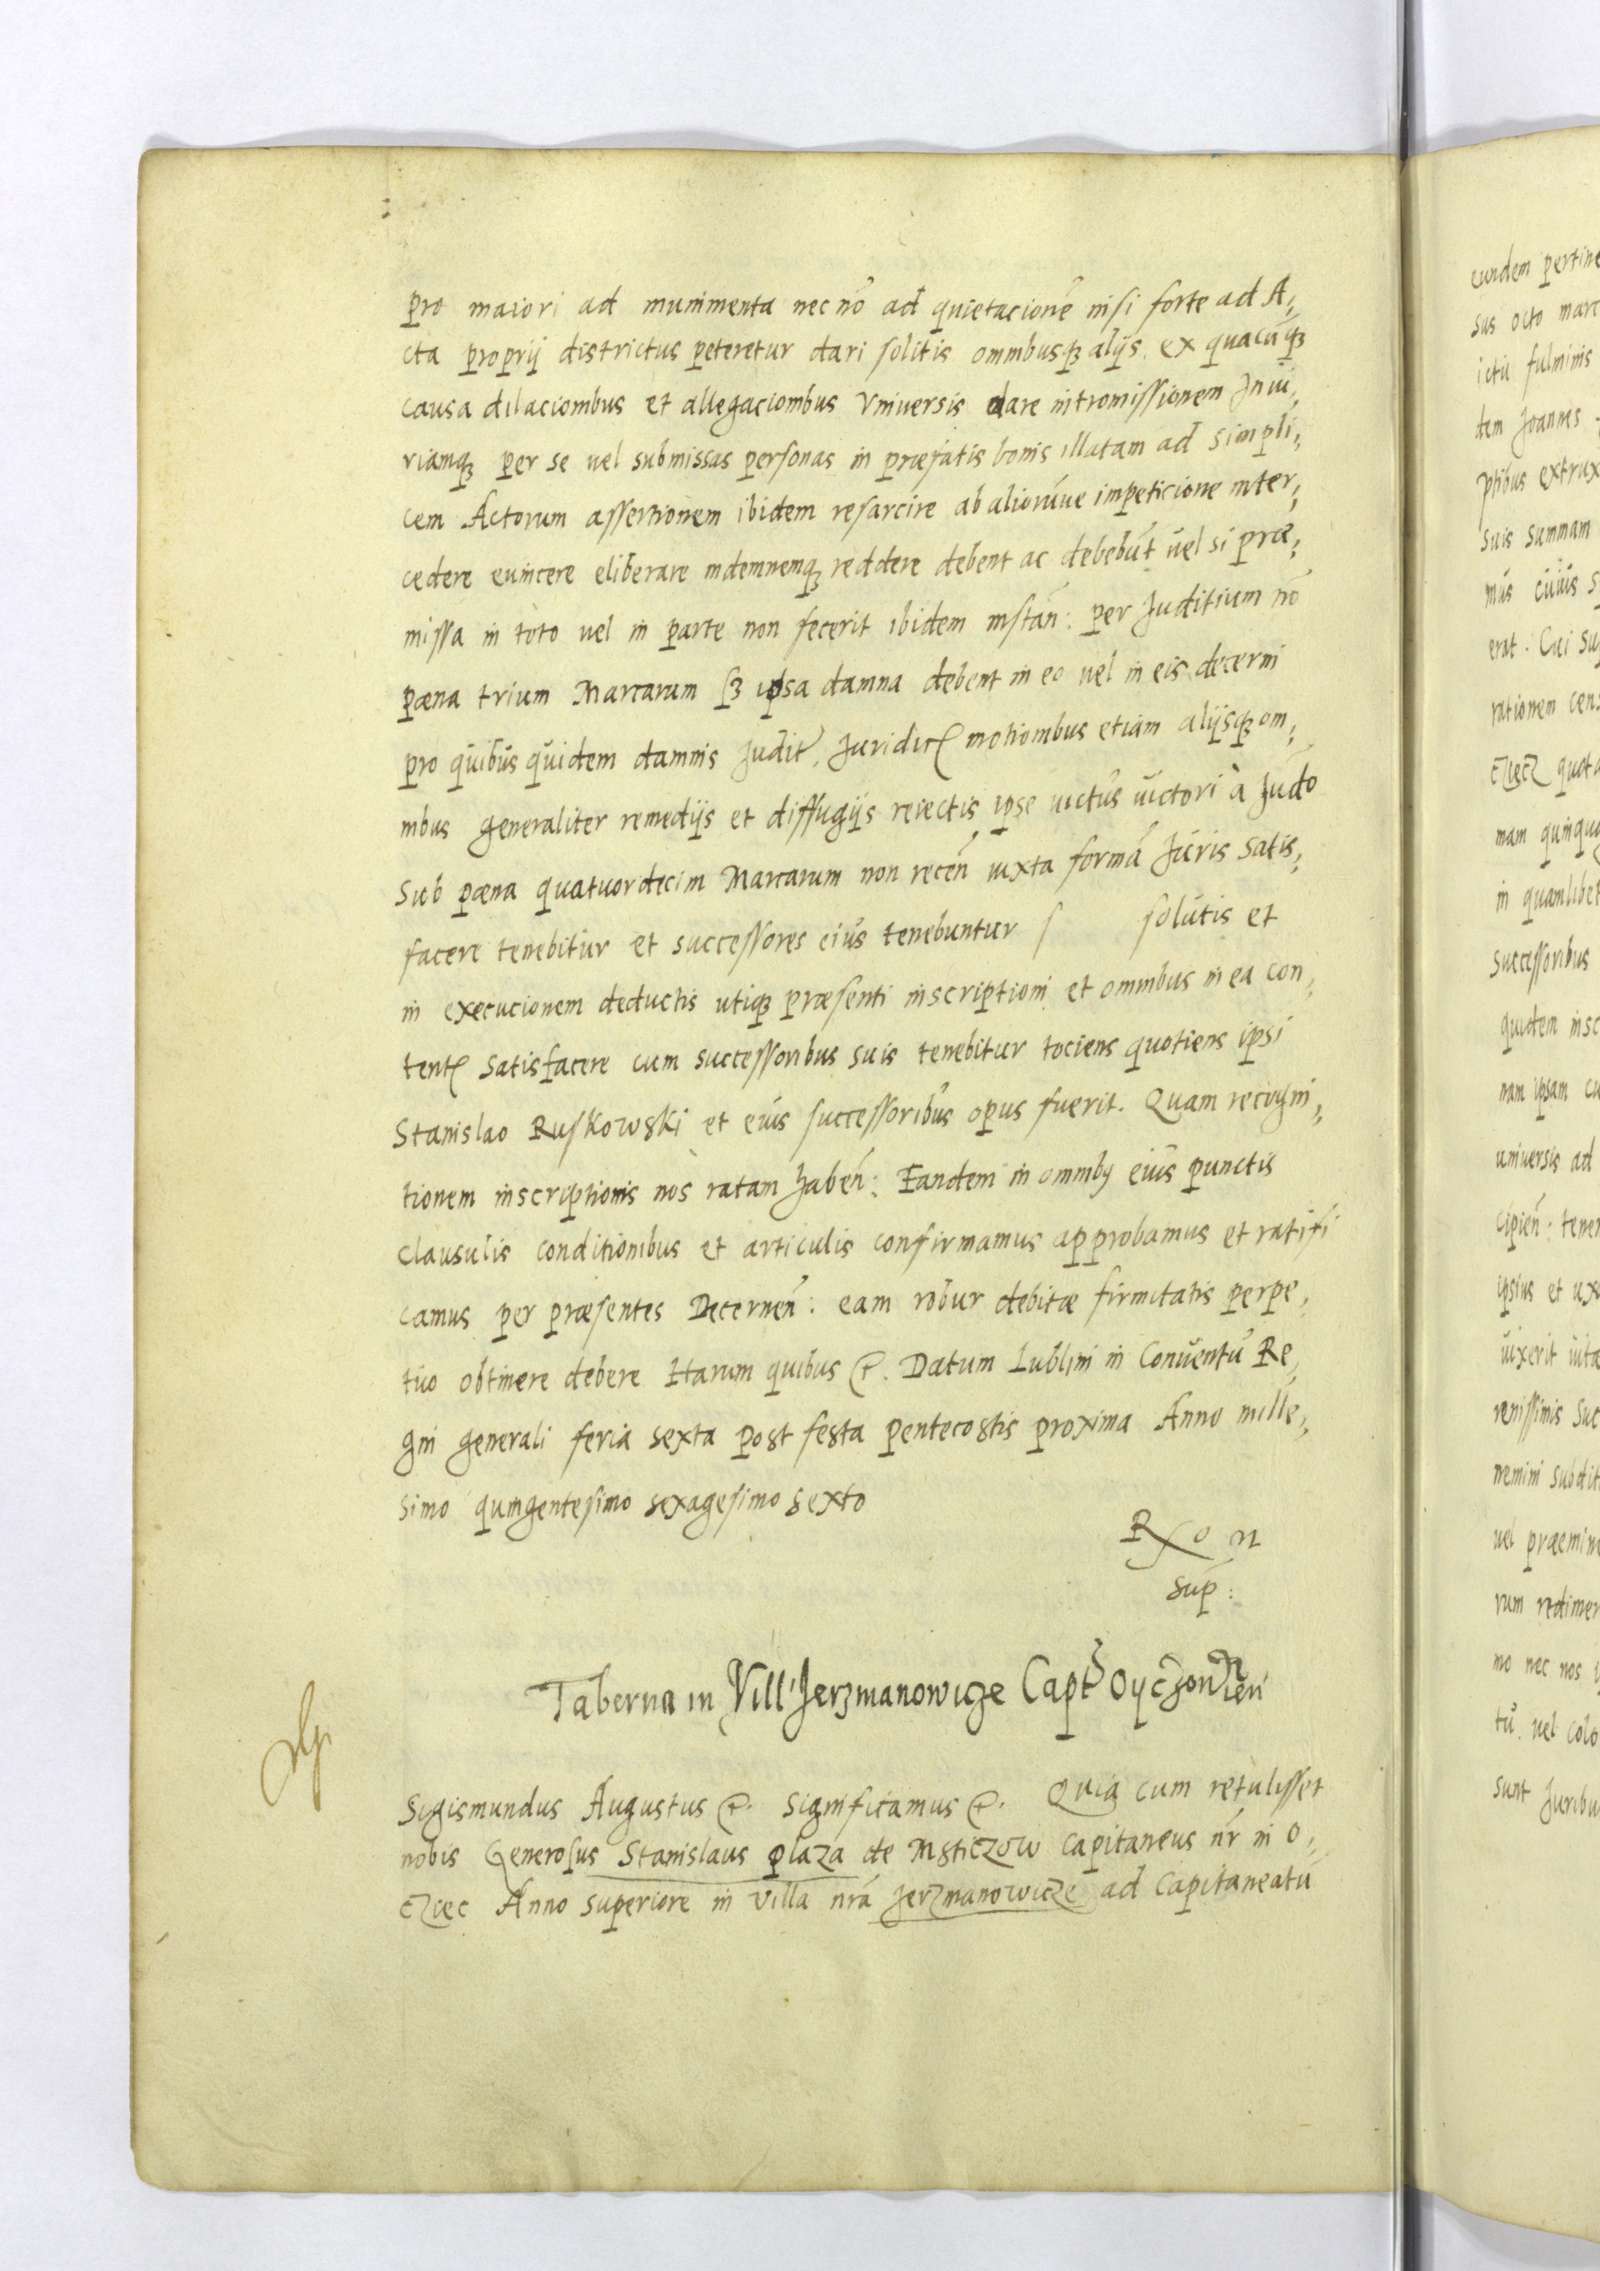 pro maiori ad munimenta nec nō ad quietacionē nisi forte ad A,
cta proprij districtus peteretur dari solitis omnibusqꝫ alijs ex quacūqꝫ
causa dilacionibus et allegacionibus Vniuersis dare intromissionem Iniu,
riamqꝫ per se uel submissas personas in præfatis bonis illatam ad simpli,
cem Actorum assertionem ibidem resarcire ab aliorūue impeticione inter,
cedere euincere eliberare indemnemqꝫ reddere debent ac debebūt uel si præ,
missa in toto uel in parte non fecerit ibidem instan̄: per Juditium nō
pæna trium Marcarum sꝫ ipsa damna debent in eo uel in eis decerni
pro quibus quidem damnis Judit, Juridic motionibus etiam alijsqꝫ om,
nibus generaliter remedijs et diffugijs reiectis ipse uictus uictori à Judō
Sub pæna quatuordecim Marcarum non recen̄ iuxta formā Juris satis,
facere tenebitur et successores eius tenebuntur s solutis et
in execucionem deductis utiqꝫ præsenti inscriptioni et omnibus in ea con,
tent satisfacere cum successoribus suis tenebitur tociens quotiens ipsi
Stanislao Ruskowski et eius successoribus opus fuerit. Quam recogni,
tionem inscriptionis nos ratam haben̄: Eandem in omnibꝰ eius punctis
clausulis conditionibus et articulis confirmamus approbamus et ratifi
camus per præsentes Decernen̄: eam robur debitæ firmitatis perpe,
tuo obtinere debere Harum quibus etc. Datum Lublini in Conuentu Re,
gni generali feria sexta post festa pentecostis proxima Anno mille,
simo quingentesimo sexagesimo sexto
R o n
sup:
Taberna in Vill' Jerzmanowicze Capt Oyczouien
Sigismundus Augustus etc. Significamus etc. Quia cum retulisset
nobis Generosus Stanislaus plaza de Msticzow Capitaneus nr̄ in O,
cziec Anno superiore in Villa nrā Jerzmanowicze ad Capitaneatū
eundem pertine
sus octo marc
ictu fulminis
dem Joannes
ptibus extrux
suis summam
mus cuius s
erat. Cui su
rationem cens
Cziec quota
mam quinqua
in quamlibet
Successoribus
quidem insc
nam ipsam cu
uniuersis ad
cipien̄: tener
ipsius et ux
uixerit uita
renissimis Suc
nemini subdit
uel præemin
rum redimer
mo nec nos
tu. uel colo
sunt Juribu